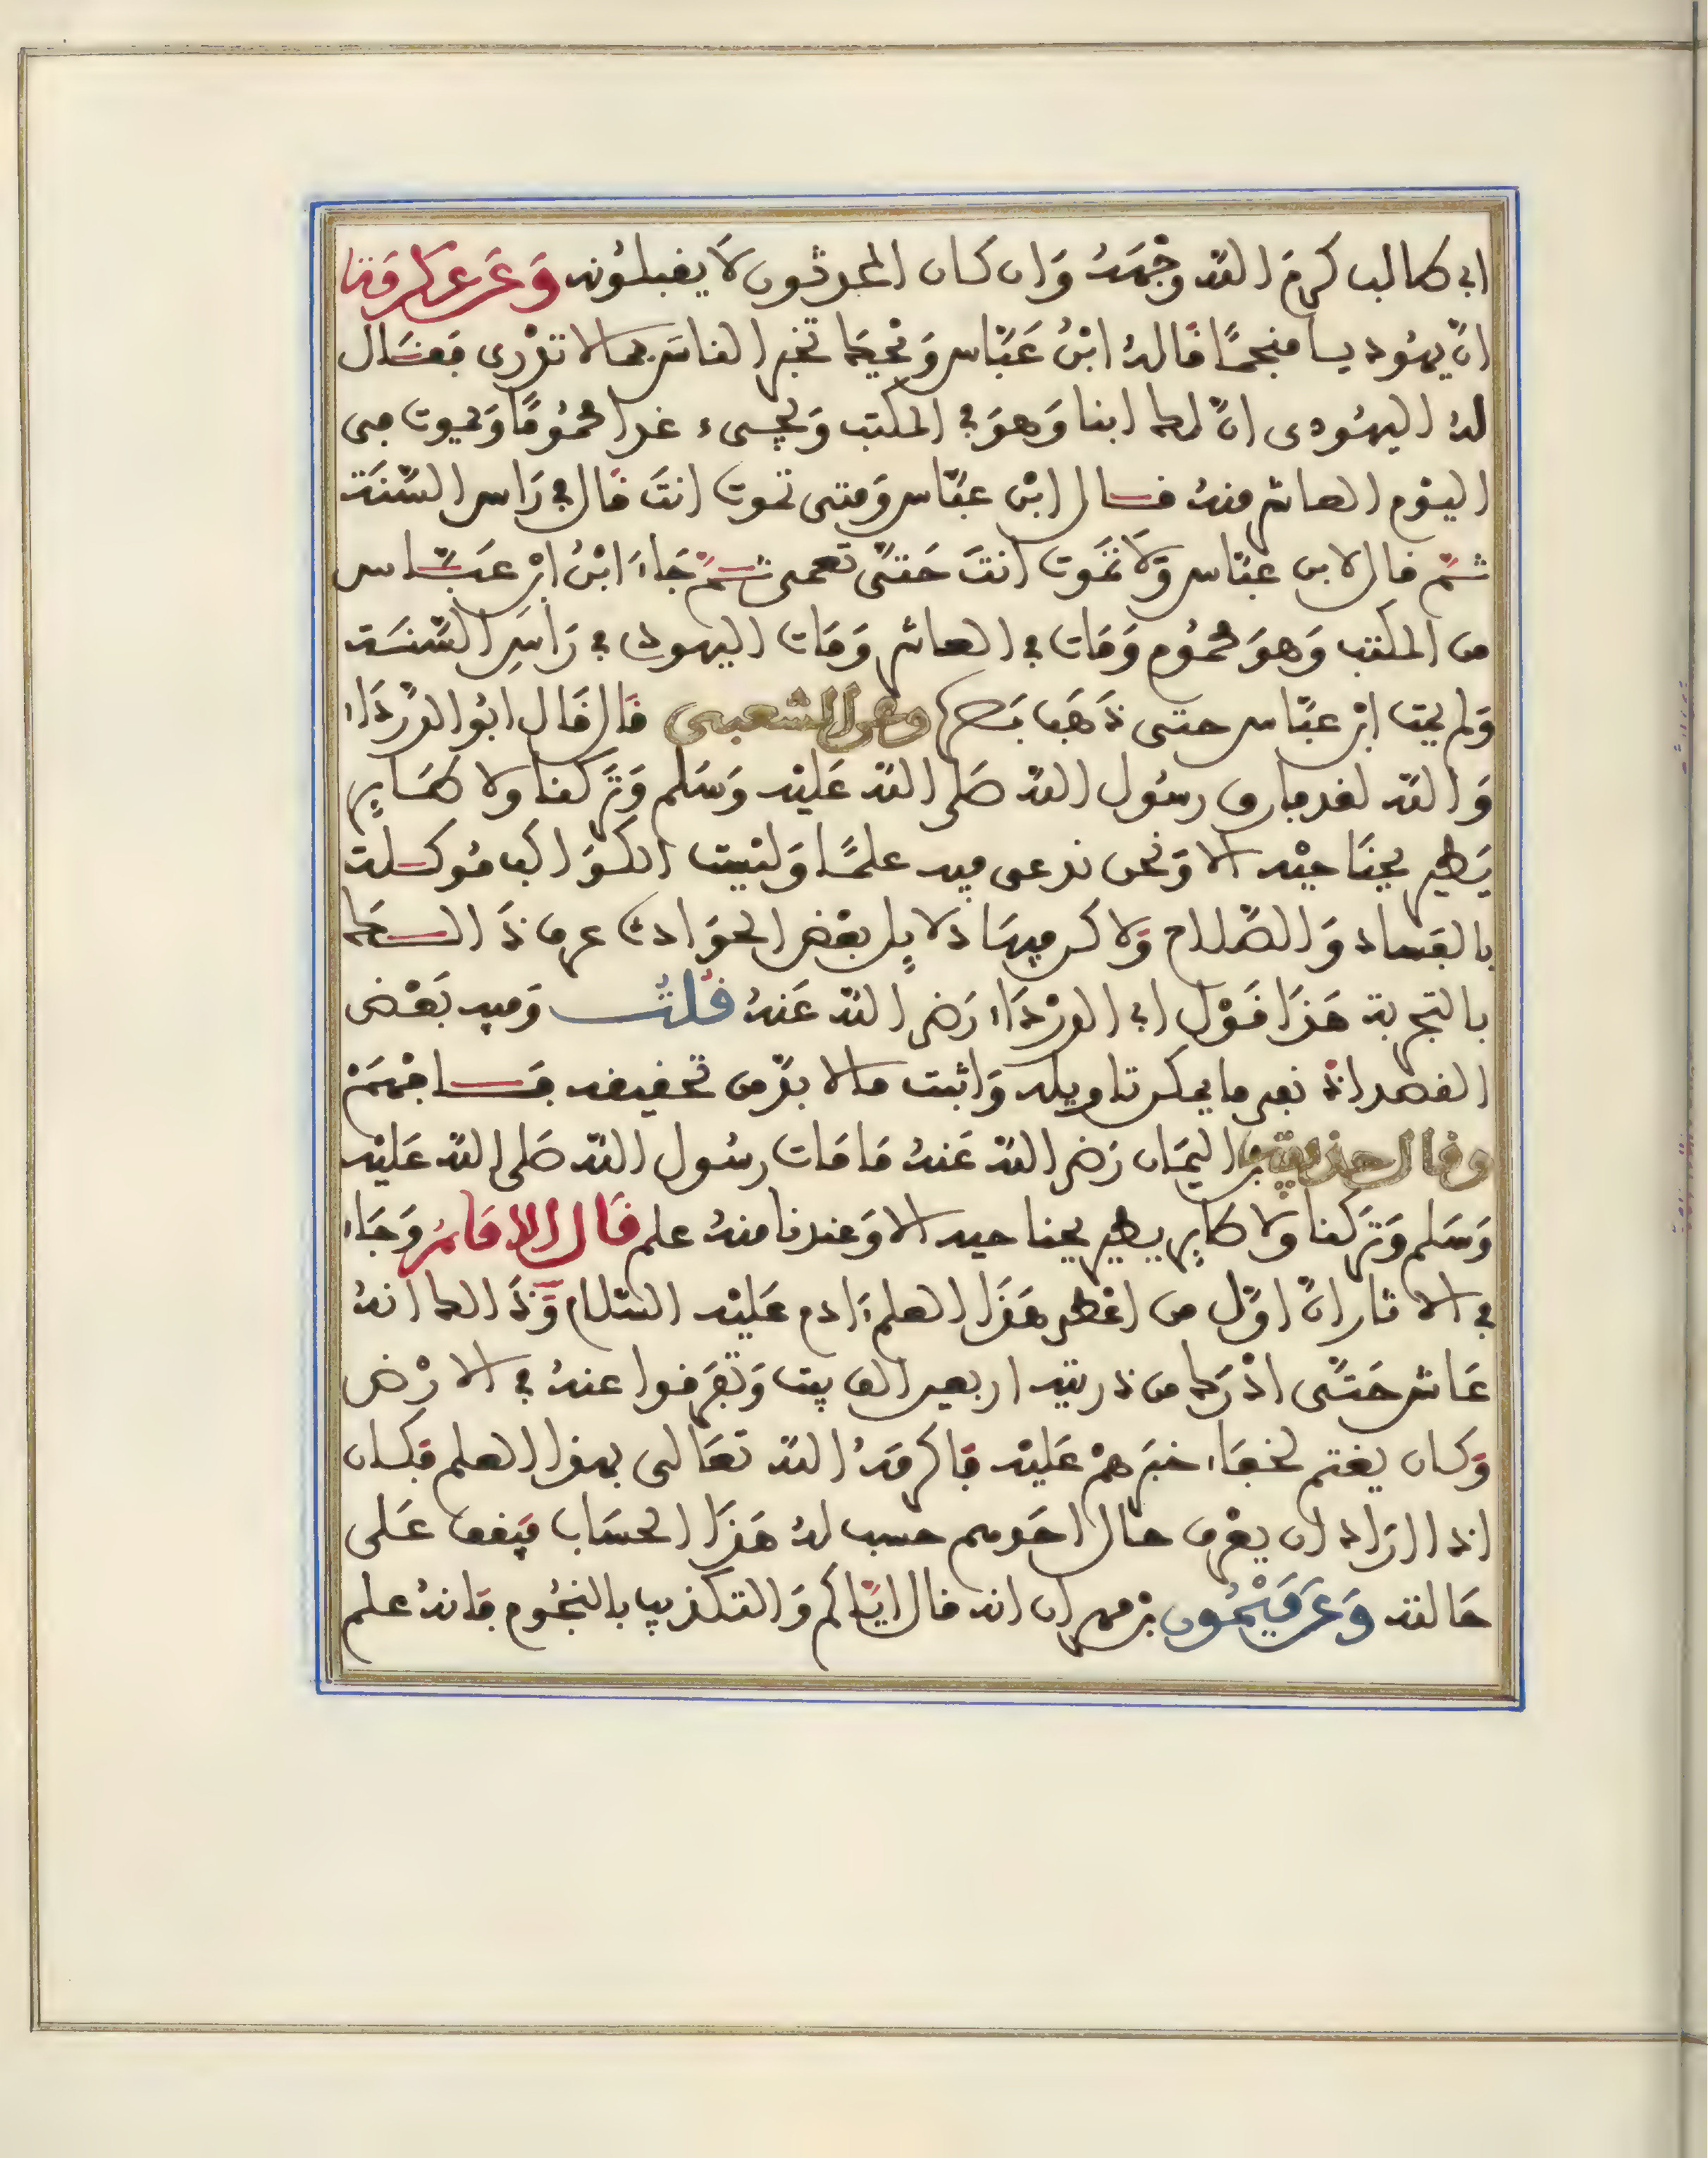 ابي طالب كرم الله وجهه وان كان المحدثون لا يقبلونه وعن عكرمة
ان يهوديا منجما قال له ابن عباس ويحك تخبر الناس بما لا تدرى فقال
له اليهودى ان لك ابنا وهو في المكتب ويجىء غدا محموما ويموت في
اليوم العاشر منه فسال ابن عباس ومتى تموت انت قال في راس السنة
ثم قال لابن عباس ولا تموت انت حتى تعمى ثم جاء ابن ابن عباس
من المكتب وهو محموم ومات في العاشر ومات اليهودي في راس السنة
ولم يمت ابن عباس حتى ذهب بصره وعن الشعبي قال قال ابو الدرداء
والله لقد فارق رسول الله صلى الله عليه وسلم وتركنا ولا طاير
يطير بجناحيه الا ونحن ندعي فيه علما وليست الكواكب موكلة
بالفساد والصلاح ولاكن فيها دلايل بعض الحوادث عرف ذالك
بالتجربة هذا قول ابي الدرداء رضي الله عنه قلت وفيه بعض
القصد اذ نفى ما يمكن تاويله واثبت ما لا بد من تحقيقه فافهم
وقال حذيفة بن اليمان رضي الله عنه ما مات رسول الله صلى الله عليه
وسلم وتركنا ولا طاير يطير بجناحيه الا وعندنا منه علم قال الامام وجاء
في الاثار ان اول من اعطي هذا العلم ءادم عليه السلام وذالك انه
عاش حتى ادرك من ذريته اربعين الف بيت وتفرقوا عنه في الارض
وكان يغتم لخفاء خبرهم عليه فاكرمه الله تعالى بهذا العلم فكان
اذا اراد ان يعرف حال احدهم حسب له هذا الحساب فيقف على
حالته وعن ميمون بن مهران انه قال اياكم والتكذيب بالنجوم فانه علم